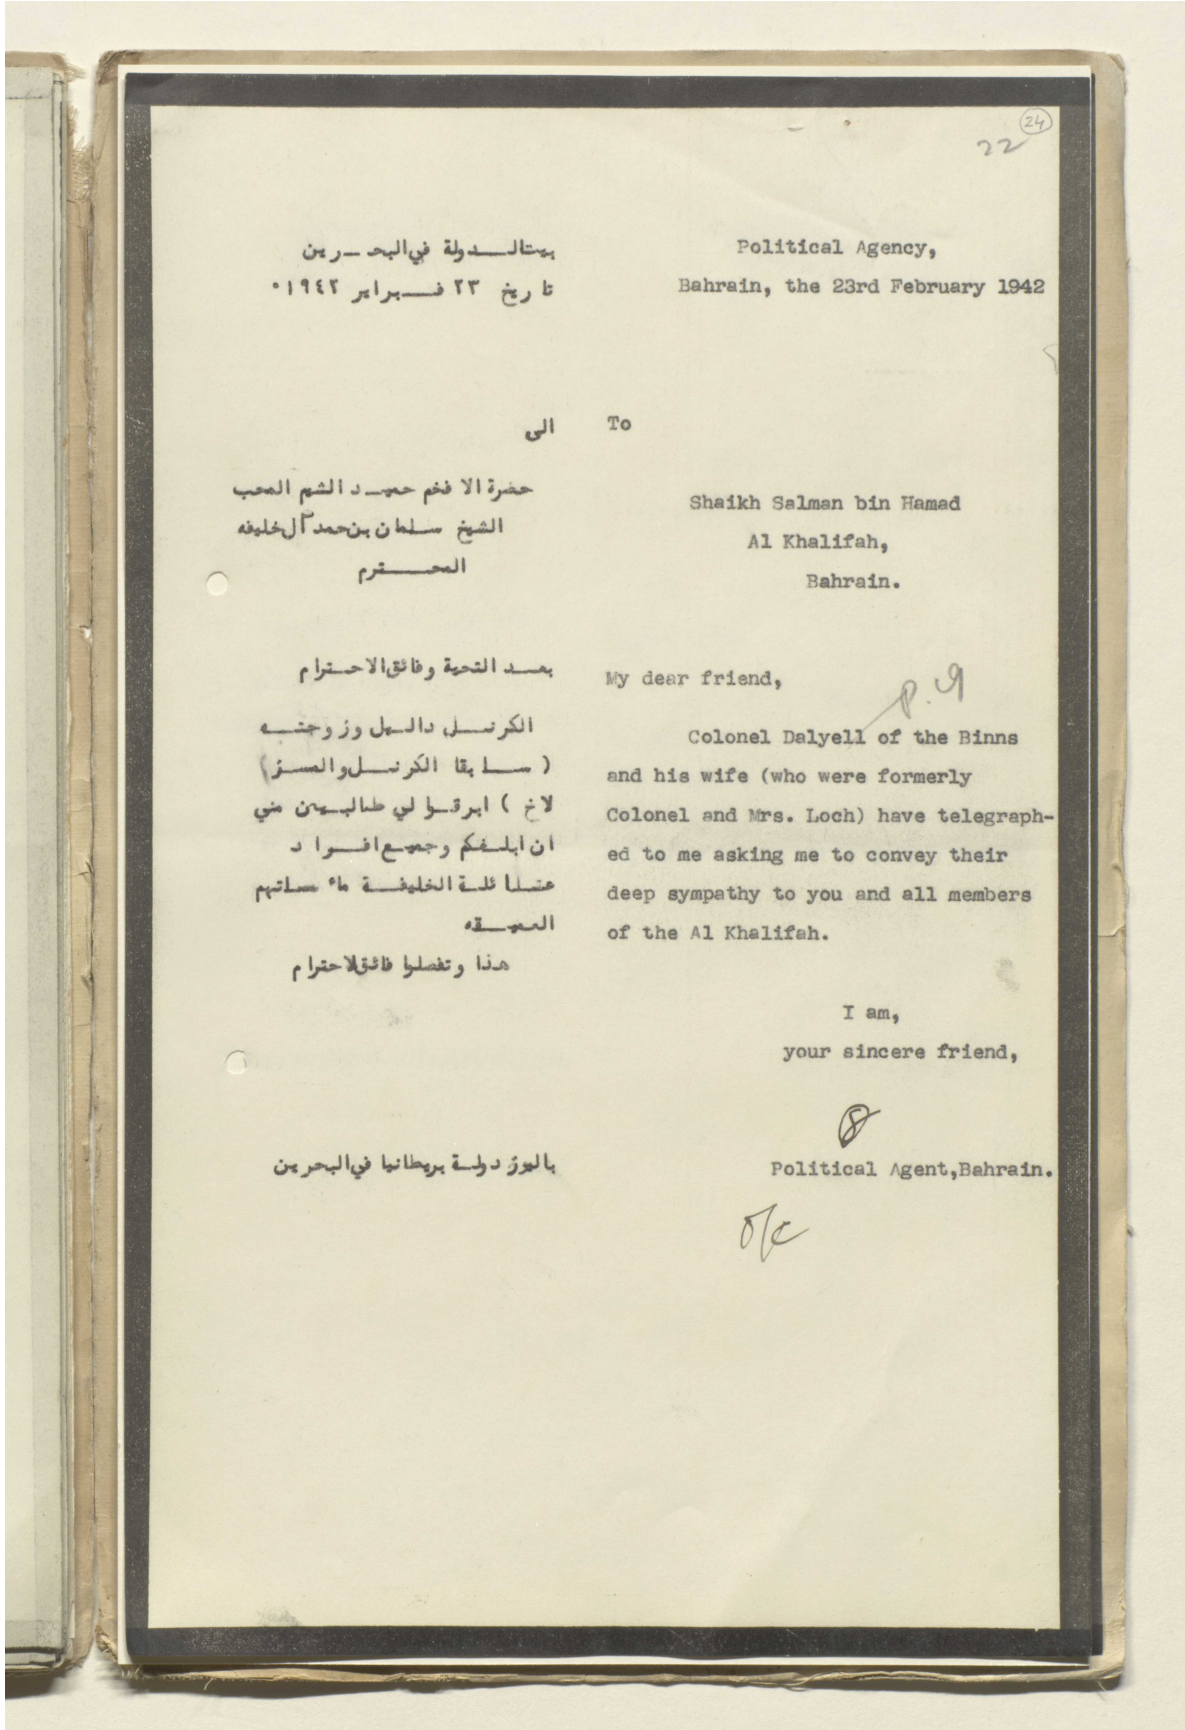 24
22
Political Agency,
Bahrain, the 23rd February 1942
To
Shaikh Salman bin Hamad
Al Khalifah,
Bahrain.
My dear friend,
p. 19
Colonel Dalyell of the Binns
and his wife (who were formerly
Colonel and Mrs. Loch) have telegraph-
ed to me asking me to convey their
deep sympathy to you and all members
of the Al Khalifah.
I am,
your sincere friend,
Political Agent,Bahrain.
o/c
بيت الدولة في البحرين
تاريخ ٢٣ فبراير ١٩٤٢٠
الى
حضرة الافخم حميد الشيم المحب
الشيخ سلمان بن حمد آل خليفه
المحترم
بعد التحية وفائق الاحترام
الكرنل داليل وزوجته
( سابقا الكرنل والمسز
لاخ ) ابرقوا لي طالبين مني
ان ابلغكم وجميع افراد
الخليفة
العميقه
هذا وتفضلوا فائق لاحترام
باليوز دولة بريطانيا في البحرين